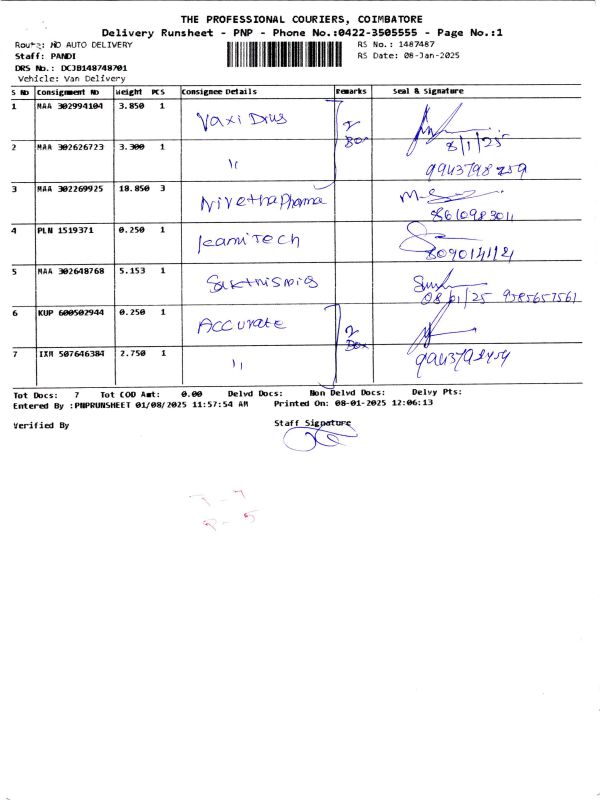 THE PROFESSIONAL COURIERS, COIMBATORE
Delivery Runsheet - PNP - Phone No.:0422-3505555 - Page No.:1
Route: NO AUTO DELIVERY RS No.: 1487487
Staff: PANDI RS Date: 08-Jan-2025
DRS No.: DCJB148748701
Vehicle: Van Delivery
S No Consignment No Weight PCS Consignee Details Remarks Seal & Signature
1 MAA 302994104 3.850 1 Vaxi Drus 2 Box 8/1/25
2 MAA 302626723 3.300 1 ''
3 MAA 302269925 18.850 3 Nivetha Pharma 8610983011
4 PLN 1519371 0.250 1
5 MAA 302648768 5.153 1 08/01/25 9585657561
6 KUP 600502944 0.250 1 Accurate 2 Box
7 IXM 507646384 2.750 1 ''
Tot Docs: 7 Tot COD Amt: 0.00 Delvd Docs: Non Delvd Docs: Delvy Pts:
Entered By :PNPRUNSHEET 01/08/2025 11:57:54 AM Printed On: 08-01-2025 12:06:13
Verified By Staff Signature
7 - 7
P - 5